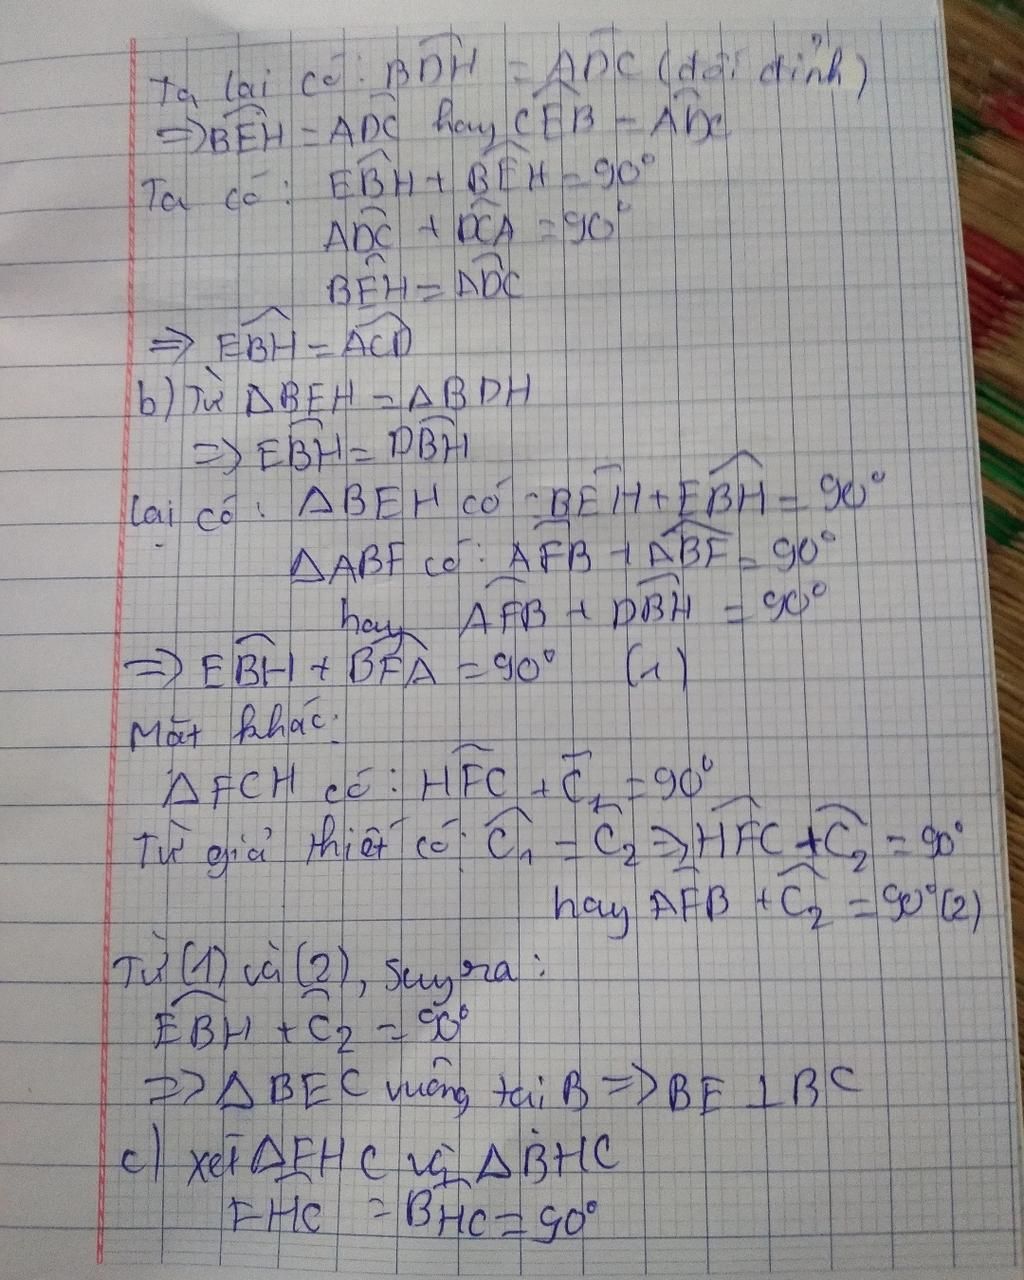 Ta lại có: BDH = ADC (đối đỉnh)
=> BEH = ADC hay CEB = ADC
Ta có: EBH + BEH = 90°
ADC + DCA = 90°
BEH = ADC
=> EBH = ACD
b) Từ ΔBEH = ΔBDH
=> EBH = DBH
Lại có: ΔBEH có: BEH + EBH = 90°
ΔABF có: AFB + ABF = 90°
hay AFB + DBH = 90°
=> EBH + BFA = 90° (1)
Mặt khác:
ΔFCH có: HFC + C₁ = 90°
Từ giả thiết có: C₁ = C₂ => HFC + C₂ = 90°
hay AFB + C₂ = 90° (2)
Từ (1) và (2), suy ra:
EBH + C₂ = 90°
=> ΔBEC vuông tại B => BE ⊥ BC
c) xét ΔFHC và ΔBHC
FHC = BHC = 90°